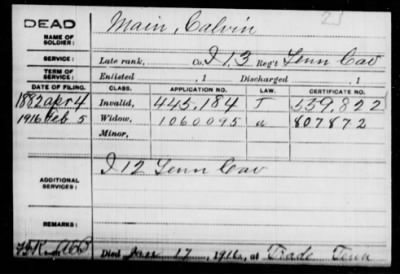 DEAD
NAME OF SOLDIER: Main, Calvin
SERVICE: Late rank, Co. I 13 Reg't Tenn Cav
TERM OF SERVICE: Enlisted , 1 Discharged , 1
DATE OF FILING. CLASS. APPLICATION NO. LAW. CERTIFICATE NO.
1882 Apr 4 Invalid, 445,184 559,822
1916 Feb 5 Widow, 1060095 807872
Minor,
ADDITIONAL SERVICES: I 12 Tenn Cav
REMARKS:
Died 17, 1916, at Trade Tenn